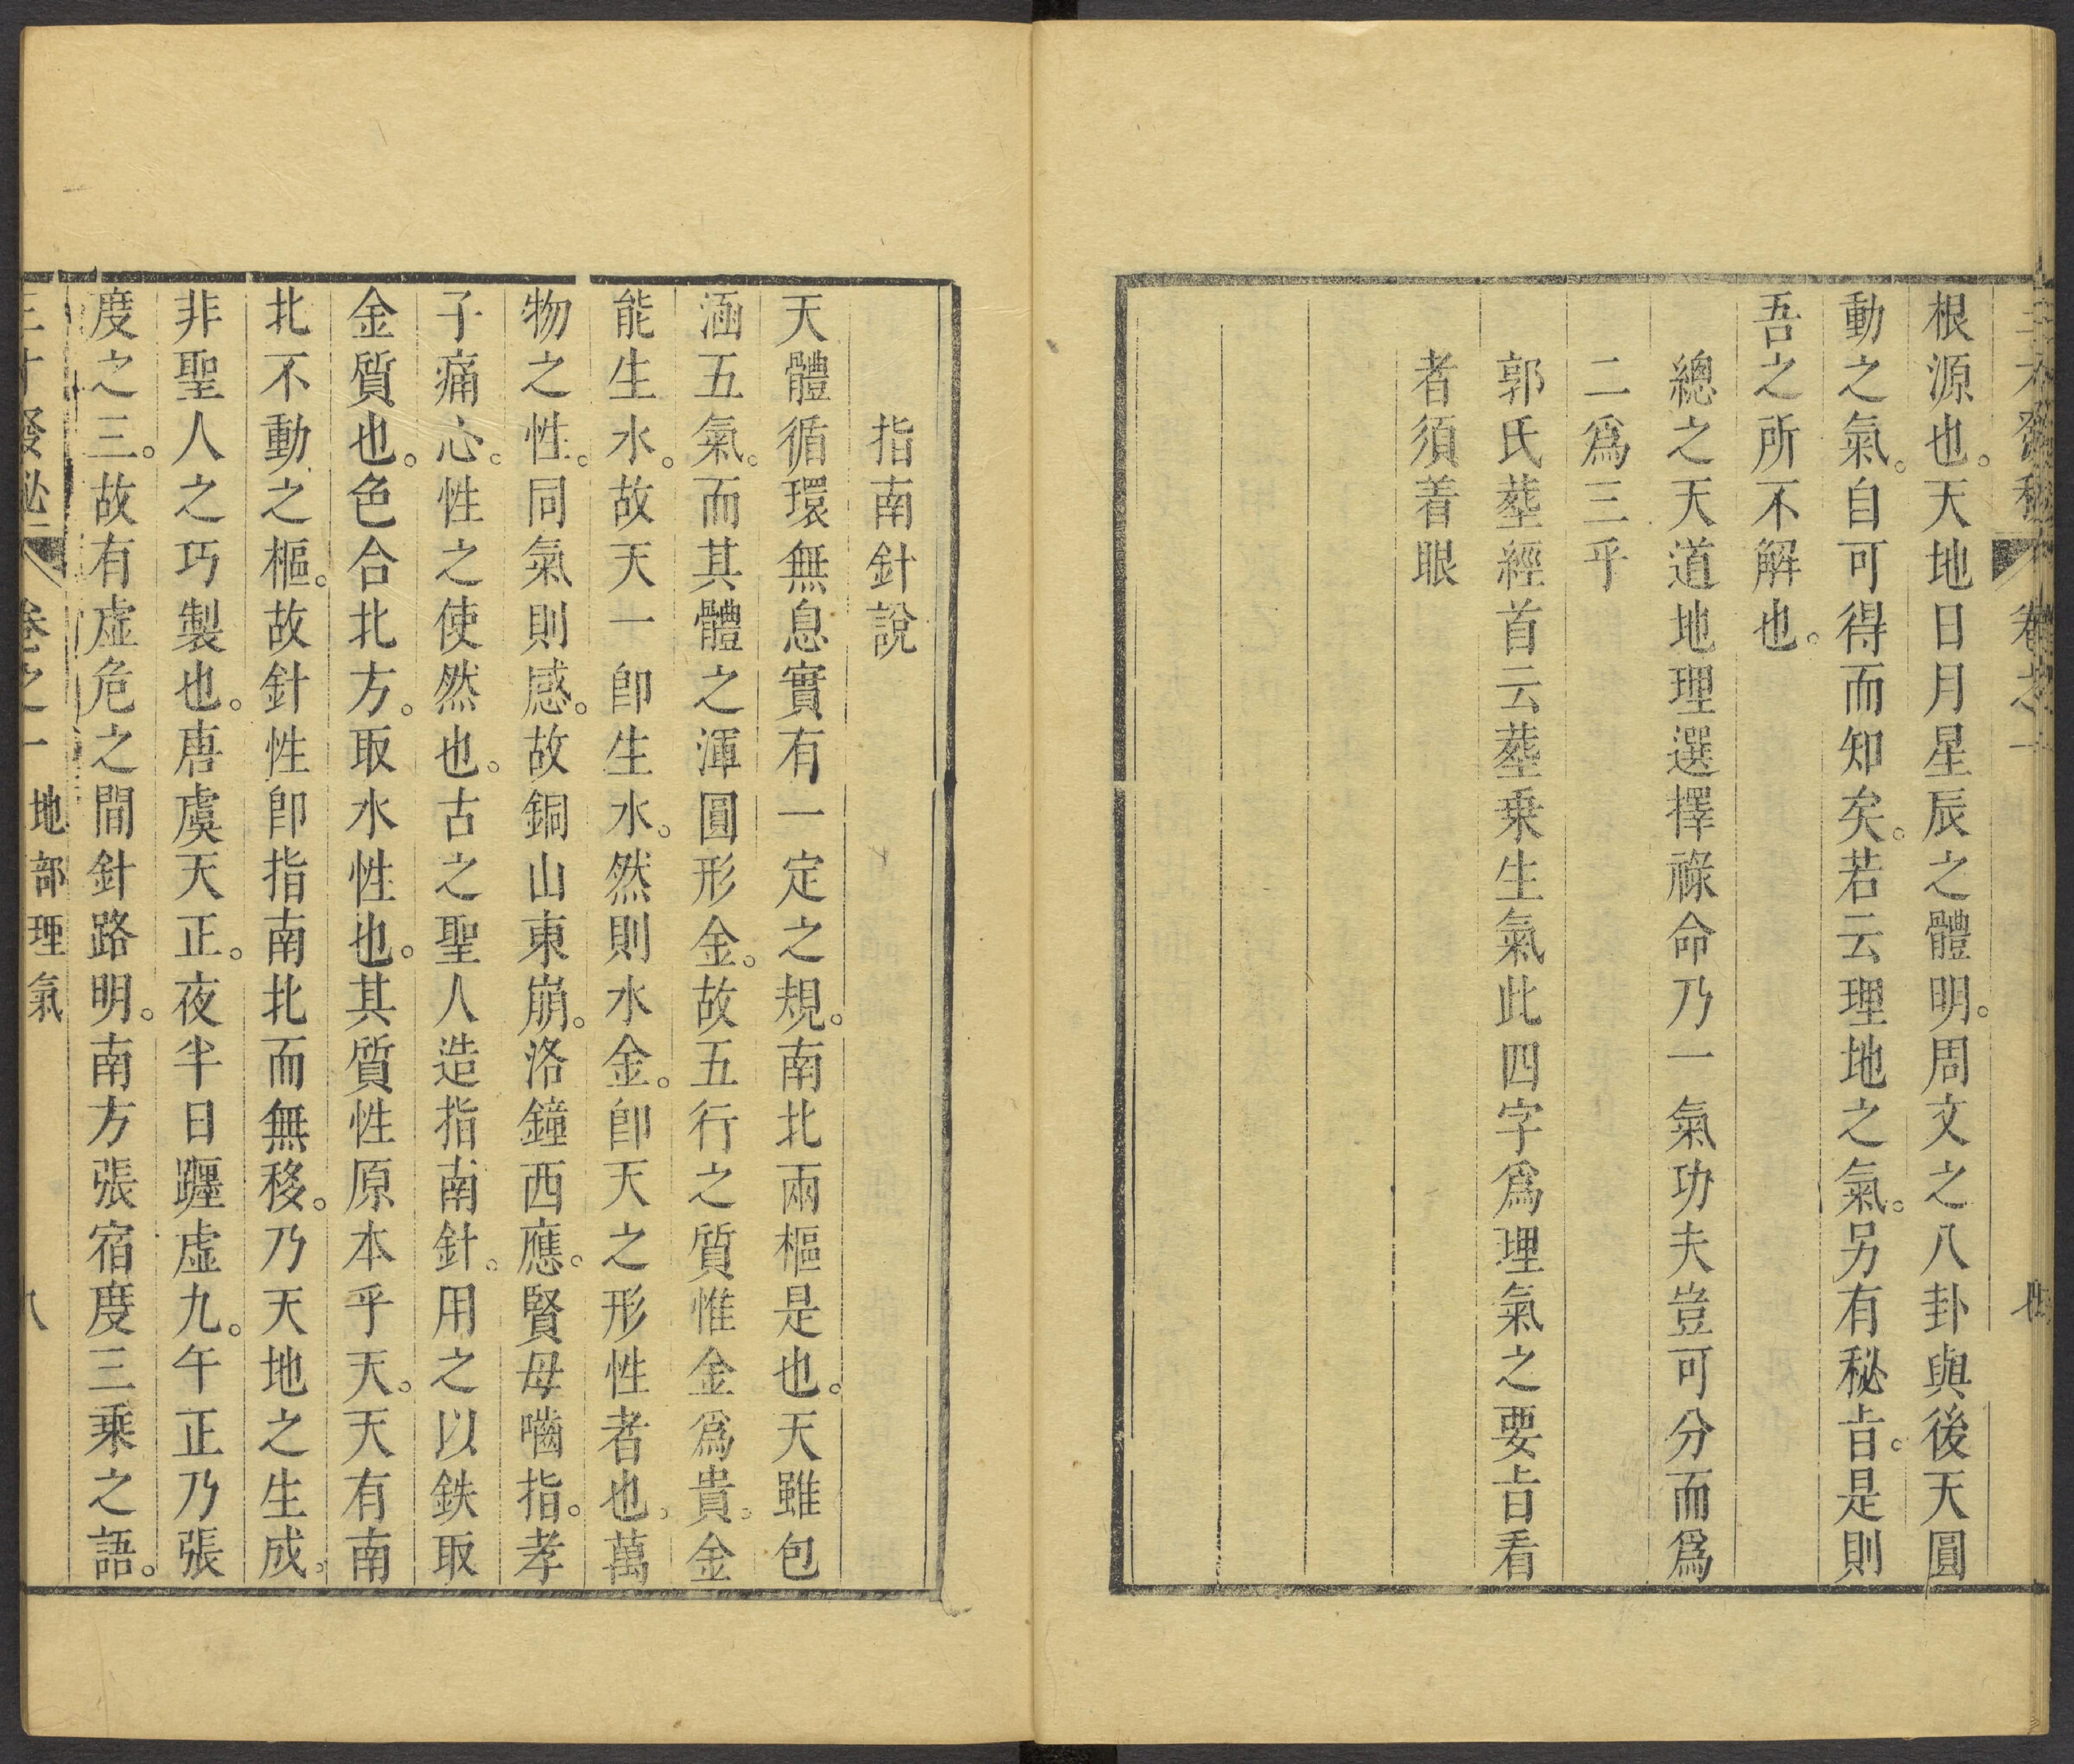 三才發秘 卷之一 七
根源也。天地日月星辰之體明。周文之八卦與後天圓
動之氣。自可得而知矣。若云理地之氣。另有秘㫖。是則
吾之所不解也。
總之天道地理選擇祿命乃一氣功夫豈可分而爲
二爲三乎
郭氏塟經首云塟乗生氣此四字爲理氣之要㫖看
者須着眼
指南針說
天體循環無息實有一定之規。南北兩樞是也。天雖包
涵五氣。而其體之渾圓形金。故五行之質惟金爲貴。金
能生水。故天一卽生水。然則水金。卽天之形性者也。萬
物之性。同氣則感。故銅山東崩。洛鐘西應。賢母嚙指。孝
子痛心。性之使然也。古之聖人造指南針。用之以鉄取
金質也。色合北方。取水性也。其質性原本乎天。天有南
北不動之樞。故針性卽指南北而無移。乃天地之生成。
非聖人之巧製也。唐虞天正。夜半日躔虛九。午正乃張
度之三。故有虛危之間針路明。南方張宿度三乘之語。
三才發秘 卷之一 地部理氣 八